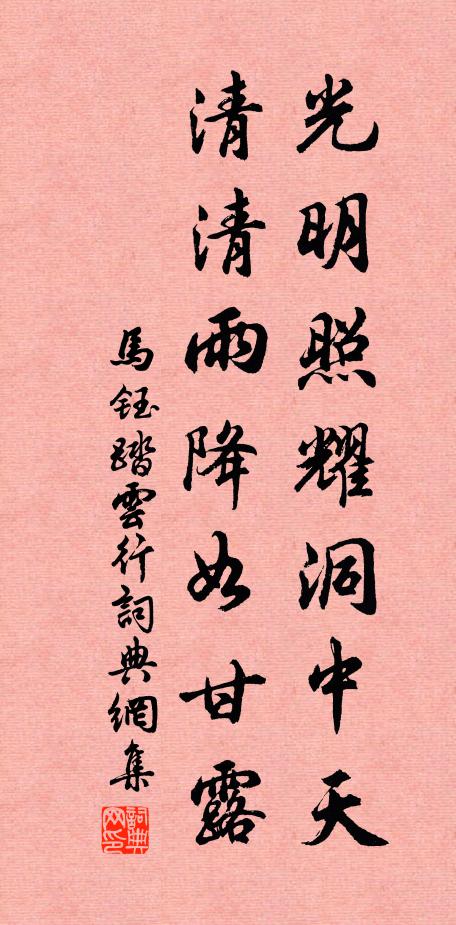 光明照耀洞中天
清清雨降如甘露
馬鈺踏雲行詞典網集
詞典网印